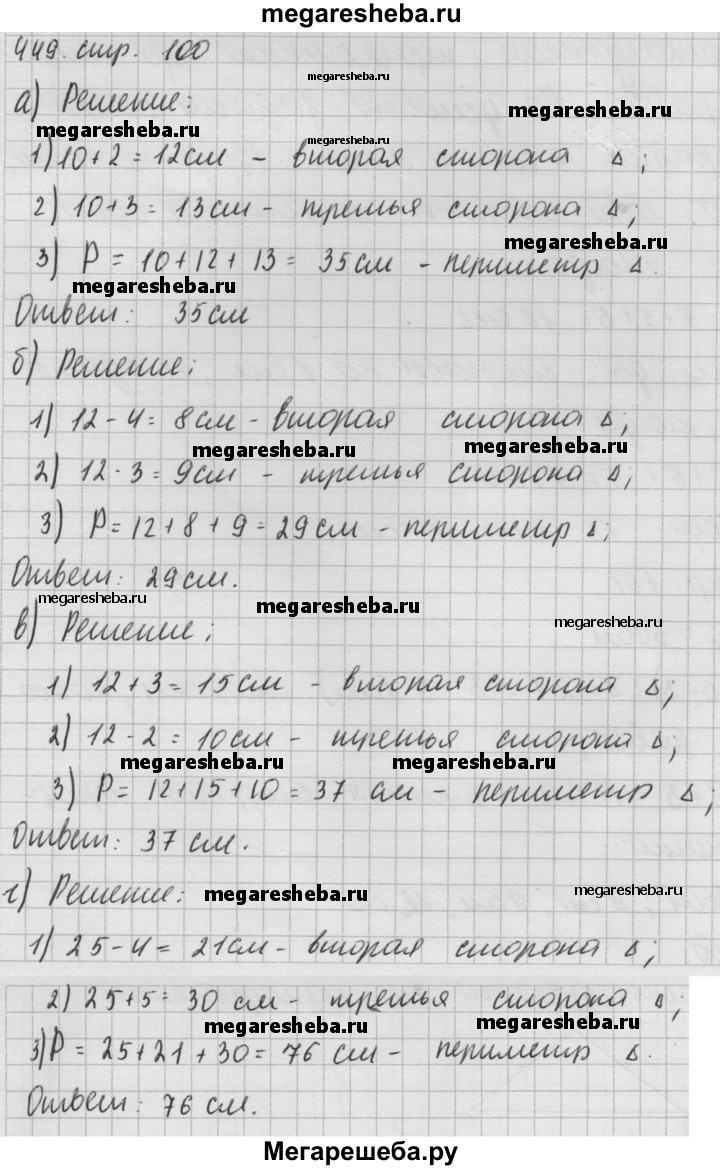 megaresheba.ru
449. стр. 100
megaresheba.ru
а) Решение:
megaresheba.ru
megaresheba.ru
megaresheba.ru
1) 10+2=12см - вторая сторона Δ;
2) 10+3=13см - третья сторона Δ;
megaresheba.ru
3) P = 10+12+13 = 35см - периметр Δ.
megaresheba.ru
Ответ: 35см
б) Решение:
1) 12-4=8см - вторая сторона Δ;
megaresheba.ru megaresheba.ru
2) 12-3=9см - третья сторона Δ;
3) P=12+8+9=29см - периметр Δ;
Ответ: 29см.
megaresheba.ru megaresheba.ru
megaresheba.ru
в) Решение:
1) 12+3=15см - вторая сторона Δ;
2) 12-2=10см - третья сторона Δ;
megaresheba.ru megaresheba.ru
3) P=12+15+10=37 см - периметр Δ;
Ответ: 37 см.
г) Решение:
megaresheba.ru megaresheba.ru
1) 25-4=21см - вторая сторона Δ;
2) 25+5=30 см - третья сторона Δ;
megaresheba.ru megaresheba.ru
3) P = 25+21+30=76 см - периметр Δ.
Ответ: 76 см.
Мегарешеба.ру